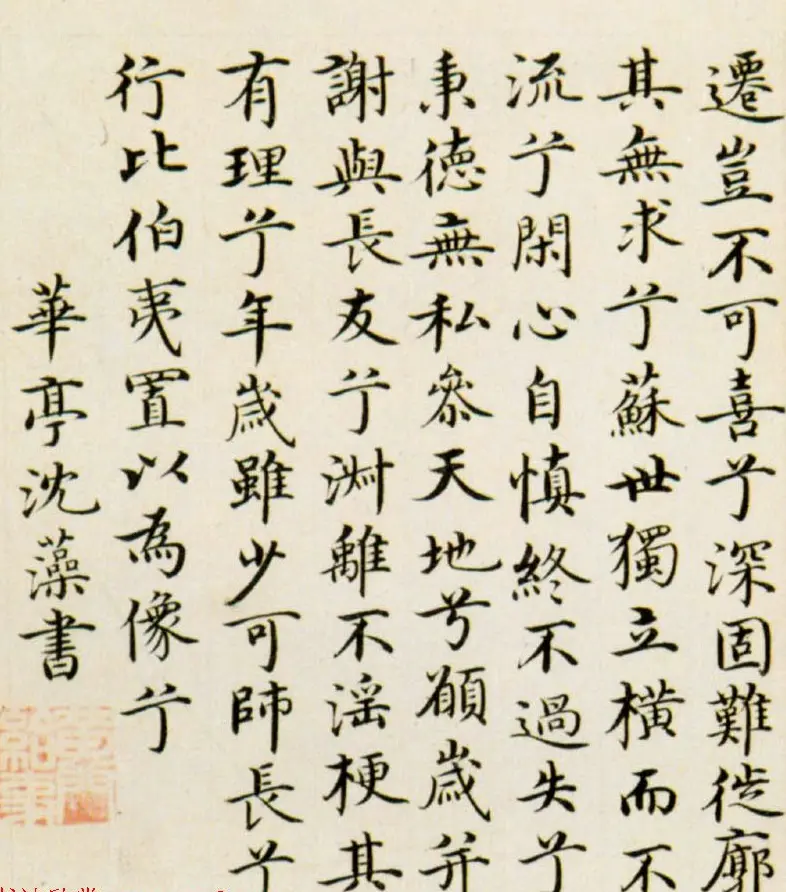 遷豈不可喜兮深固難徙廓
其無求兮蘇世獨立橫而不
流兮閑心自慎終不過失兮
秉德無私參天地兮願歲并
謝與長友兮淑離不淫梗其
有理兮年歲雖少可師長兮
行比伯夷置以為像兮
華亭沈藻書